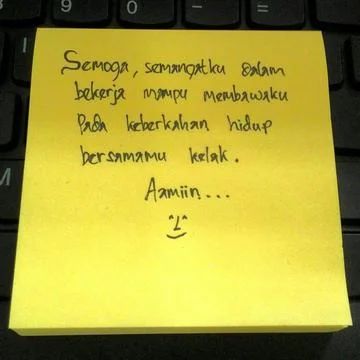 Semoga, semangatku dalam
bekerja mampu membawaku
Pada keberkahan hidup
bersamamu kelak.
Aamiin...